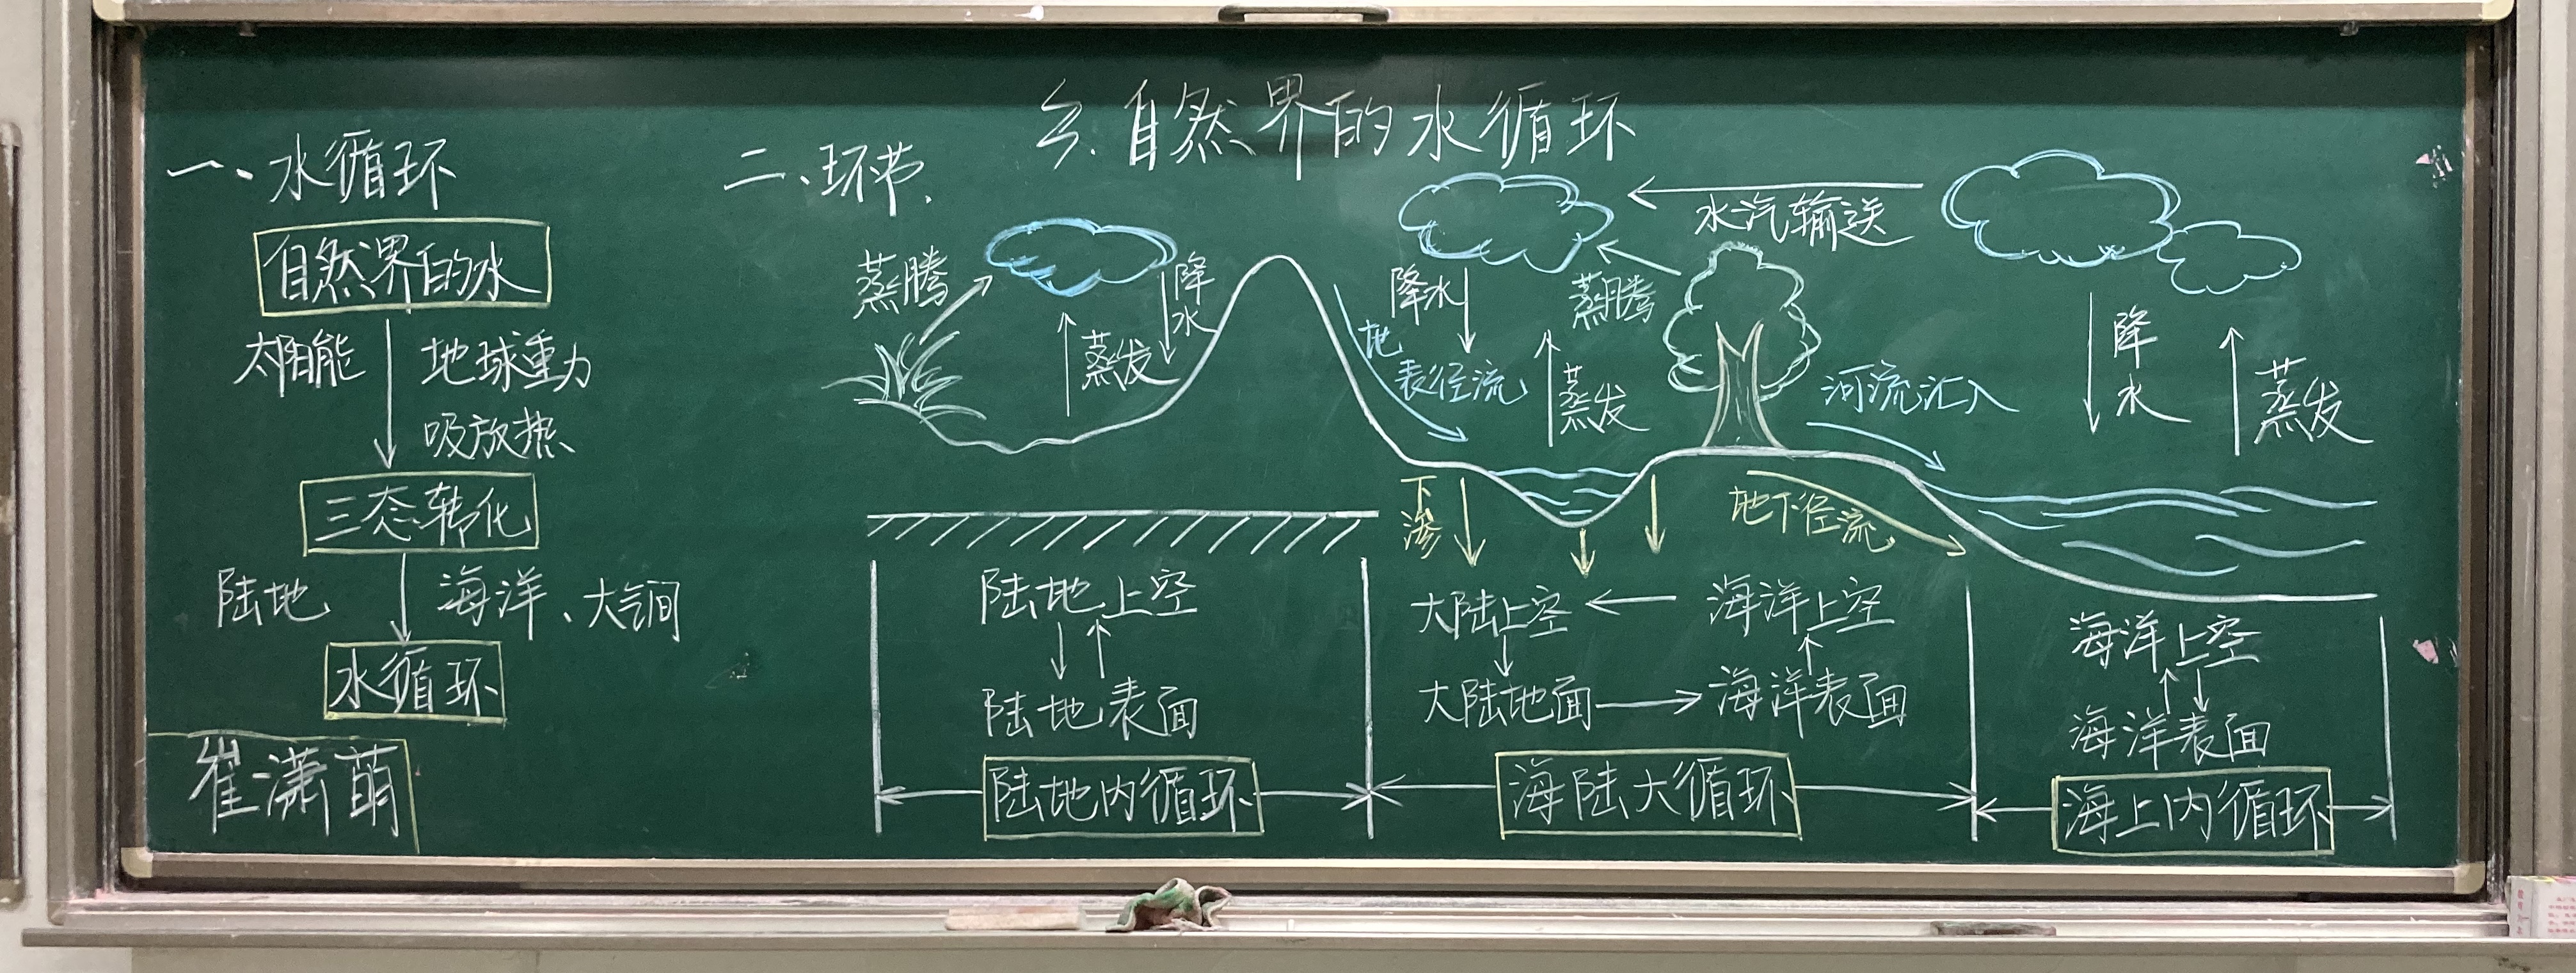 乡.自然界的水循环
一、水循环
自然界的水
太阳能 地球重力
吸放热
三态转化
陆地 海洋、大气间
水循环
崔潇萌
二、环节.
蒸腾
降水
蒸发
水汽输送
降水
蒸腾
地表径流
蒸发
河流汇入
降水
蒸发
下渗
地下径流
陆地上空
陆地表面
陆地内循环
大陆上空 海洋上空
大陆地面 海洋表面
海陆大循环
海洋上空
海洋表面
海上内循环